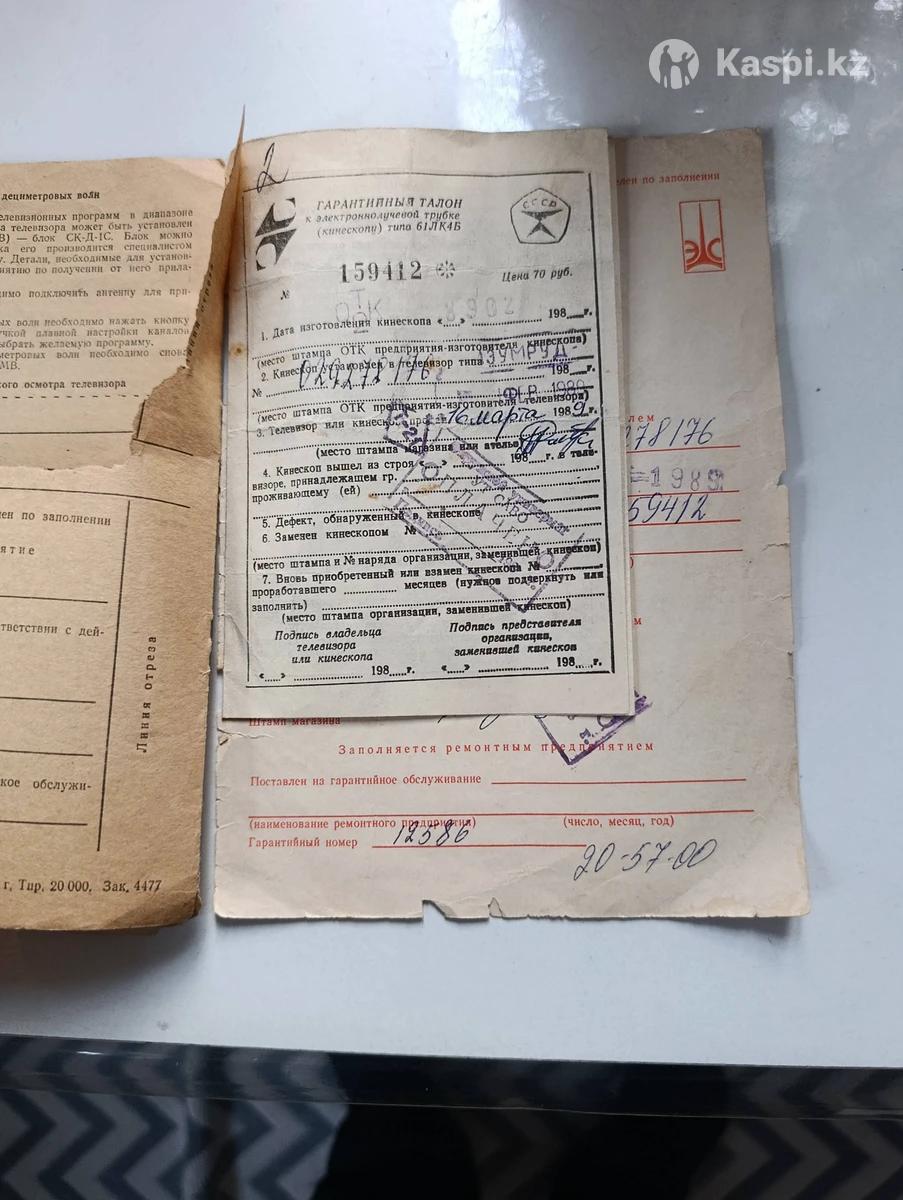 Kaspi.kz
дециметровых волн
елевизионных программ в диапазоне
ка телевизора может быть установлен
В) — блок СК-Д-1С. Блок можно
ка его производится специалистом
у. Детали, необходимые для установ-
иятию по получении от него прила-
димо подключить антенну для при-
ых волн необходимо нажать кнопку
учкой плавной настройки каналов
выбрать желаемую программу.
метровых волн необходимо снова
МВ.
кого осмотра телевизора
отреза
лен по заполнении
иятие
тветствии с дей-
Линия отреза
кое обслужи-
г. Тир. 20 000. Зак. 4477
2
ГАРАНТИЙНЫЙ ТАЛОН
к электроннолучевой трубке
(кинескопу) типа 61ЛК4Б
СССР
№ 159412
Цена 70 руб.
ОТК
1. Дата изготовления кинескопа «....» 198....г.
(место штампа ОТК предприятия-изготовителя кинескопа)
2. Кинескоп установлен в телевизор типа ИЗУМРУД
№ 029278176 198....г.
ФЕВ 1989
(место штампа ОТК предприятия-изготовителя телевизора)
3. Телевизор или кинескоп 16 марта 1989г.
(место штампа магазина или ателье)
4. Кинескоп вышел из строя «....» 198....г. в теле-
визоре, принадлежащем гр.
проживающему (ей)
ОПЛАЧЕНО
5. Дефект, обнаруженный в кинескопе
6. Заменен кинескопом №
(место штампа и № наряда организации, заменившей кинескоп)
7. Вновь приобретенный или взамен кинескопа №
проработавшего месяцев (нужное подчеркнуть или
заполнить)
(место штампа организации, заменившей кинескоп)
Подпись владельца
телевизора
или кинескопа
«....» 198....г.
Подпись представителя
организации,
заменившей кинескоп
«....» 198....г.
лен по заполнении
ЭС
лем
278176
1989
59412
)
м
Штамп магазина
Заполняется ремонтным предприятием
Поставлен на гарантийное обслуживание
(наименование ремонтного предприятия) (число, месяц, год)
Гарантийный номер 12586
20-57-00